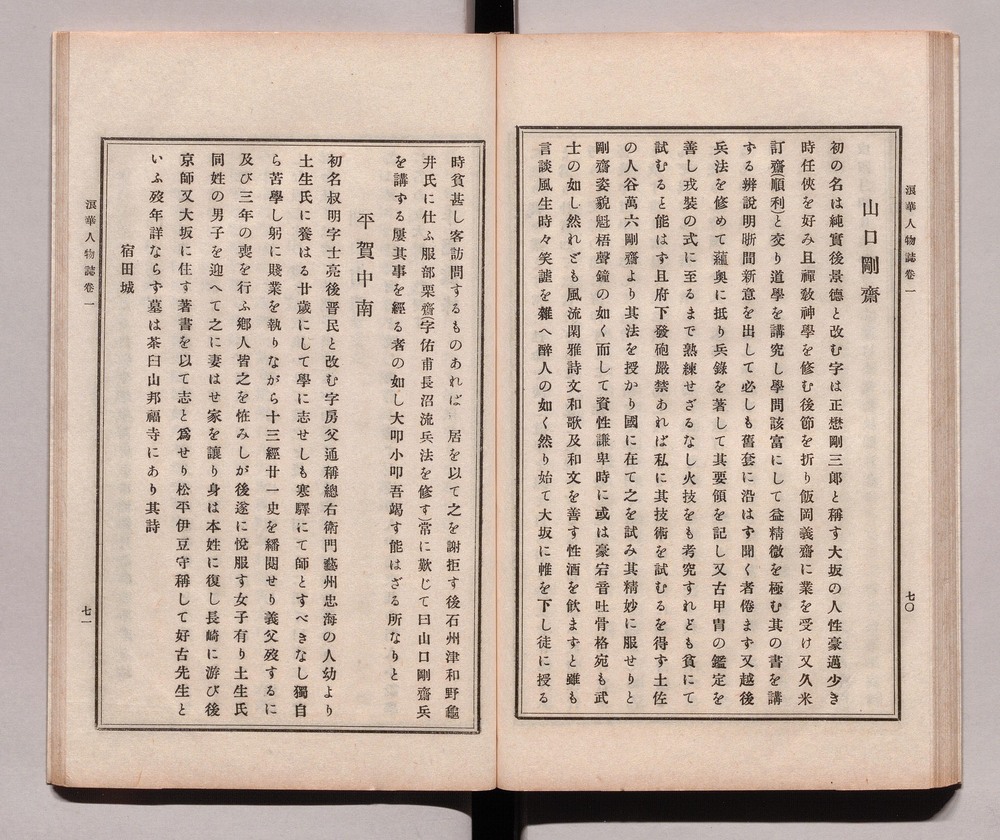 浪華人物誌卷一
七〇
山口剛齋
初の名は純實後景德と改む字は正懋剛三郞と稱す大坂の人性豪邁少き
時任俠を好み且禪敎神學を修む後節を折り飯岡義齋に業を受け又久米
訂齋(順利)と交り道學を講究し學問該富にして益精微を極む其の書を講
する辨說明晰間新意を出して必しも舊套に沿はず聞く者倦まず又越後
兵法を修めて蘊奧に抵り兵錄を著して其要領を記し又古甲冑の鑑定を
善し戎裝の式に至るまで熟練せざるなし火技をも考究すれども貧にて
試むると能はす且府下發砲嚴禁あれば私に其技術を試むるを得す土佐
の人谷萬六剛齋より其法を授かり國に在て之を試み其精妙に服せりと
剛齋姿貌魁梧聲鐘の如く而して資性謙卑時に或は豪宕音吐骨格宛も武
士の如し然れども風流閑雅詩文和歌及和文を善す性酒を飮ますと雖も
言談風生時々笑謔を雜へ醉人の如く然り始て大坂に帷を下し徒に授る
時貧甚し客訪問するものあれば 居を以て之を謝拒す後石州津和野龜
井氏に仕ふ服部栗齋(字佑甫長沼流兵法を修す)常に歎じて曰山口剛齋兵
を講ずる屢其事を經る者の如し大叩小叩吾竭す能はざる所なりと
平賀中南
初名叔明字士亮後晋民と改む字房父通稱總右衛門藝州忠海の人幼より
土生氏に養はる廿歲にして學に志せしも寒驛にて師とすべきなし獨自
ら苦學し躬に賤業を執りながら十三經廿一史を繙閱せり義父歿するに
及び三年の喪を行ふ鄕人皆之を恠みしが後遂に悅服す女子有り土生氏
同姓の男子を迎へて之に妻はせ家を讓り身は本姓に復し長崎に游び後
京師又大坂に住す著書を以て志と爲せり松平伊豆守稱して好古先生と
いふ歿年詳ならず墓は茶臼山邦福寺にあり其詩
宿田城
浪華人物誌卷一
七一